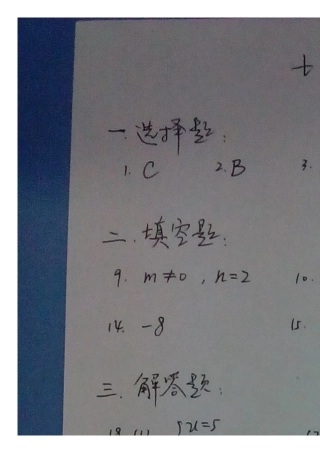 七
一.选择题:
1. C 2. B 3.
二.填空题:
9. m≠0 , n=2 10.
14. -8 15.
三.解答题: